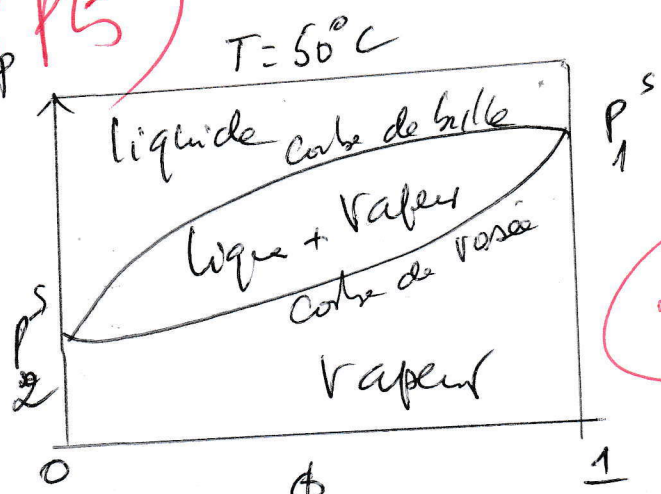 P5
T=50°C
P
liquide
courbe de bulle
P₁ˢ
liqui + vapeur
courbe de rosée
P₂ˢ
vapeur
0
1